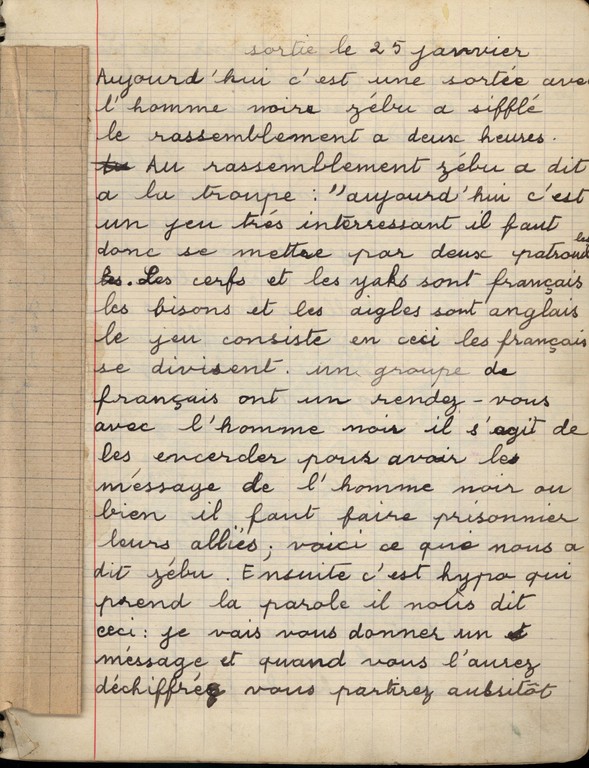 sortie le 25 janvier
Aujourd'hui c'est une sortée avec
l'homme noire zébu a sifflé
le rassemblement a deux heures.
Au rassemblement zébu a dit
a la troupe : "aujourd'hui c'est
un jeu trés interressant il faut
donc se mettre par deux patrouil
les. Les cerfs et les yaks sont français
les bisons et les aigles sont anglais
le jeu consiste en ceci les français
se divisent. un groupe de
français ont un rendez-vous
avec l'homme noir il s'agit de
les encerder pour avoir les
méssage de l'homme noir ou
bien il faut faire prisonnier
leurs alliés; voici ce que nous a
dit zébu. Ensuite c'est hypo qui
prend la parole il nous dit
ceci: je vais vous donner un
méssage et quand vous l'aurez
déchiffrés vous partirez aussitôt